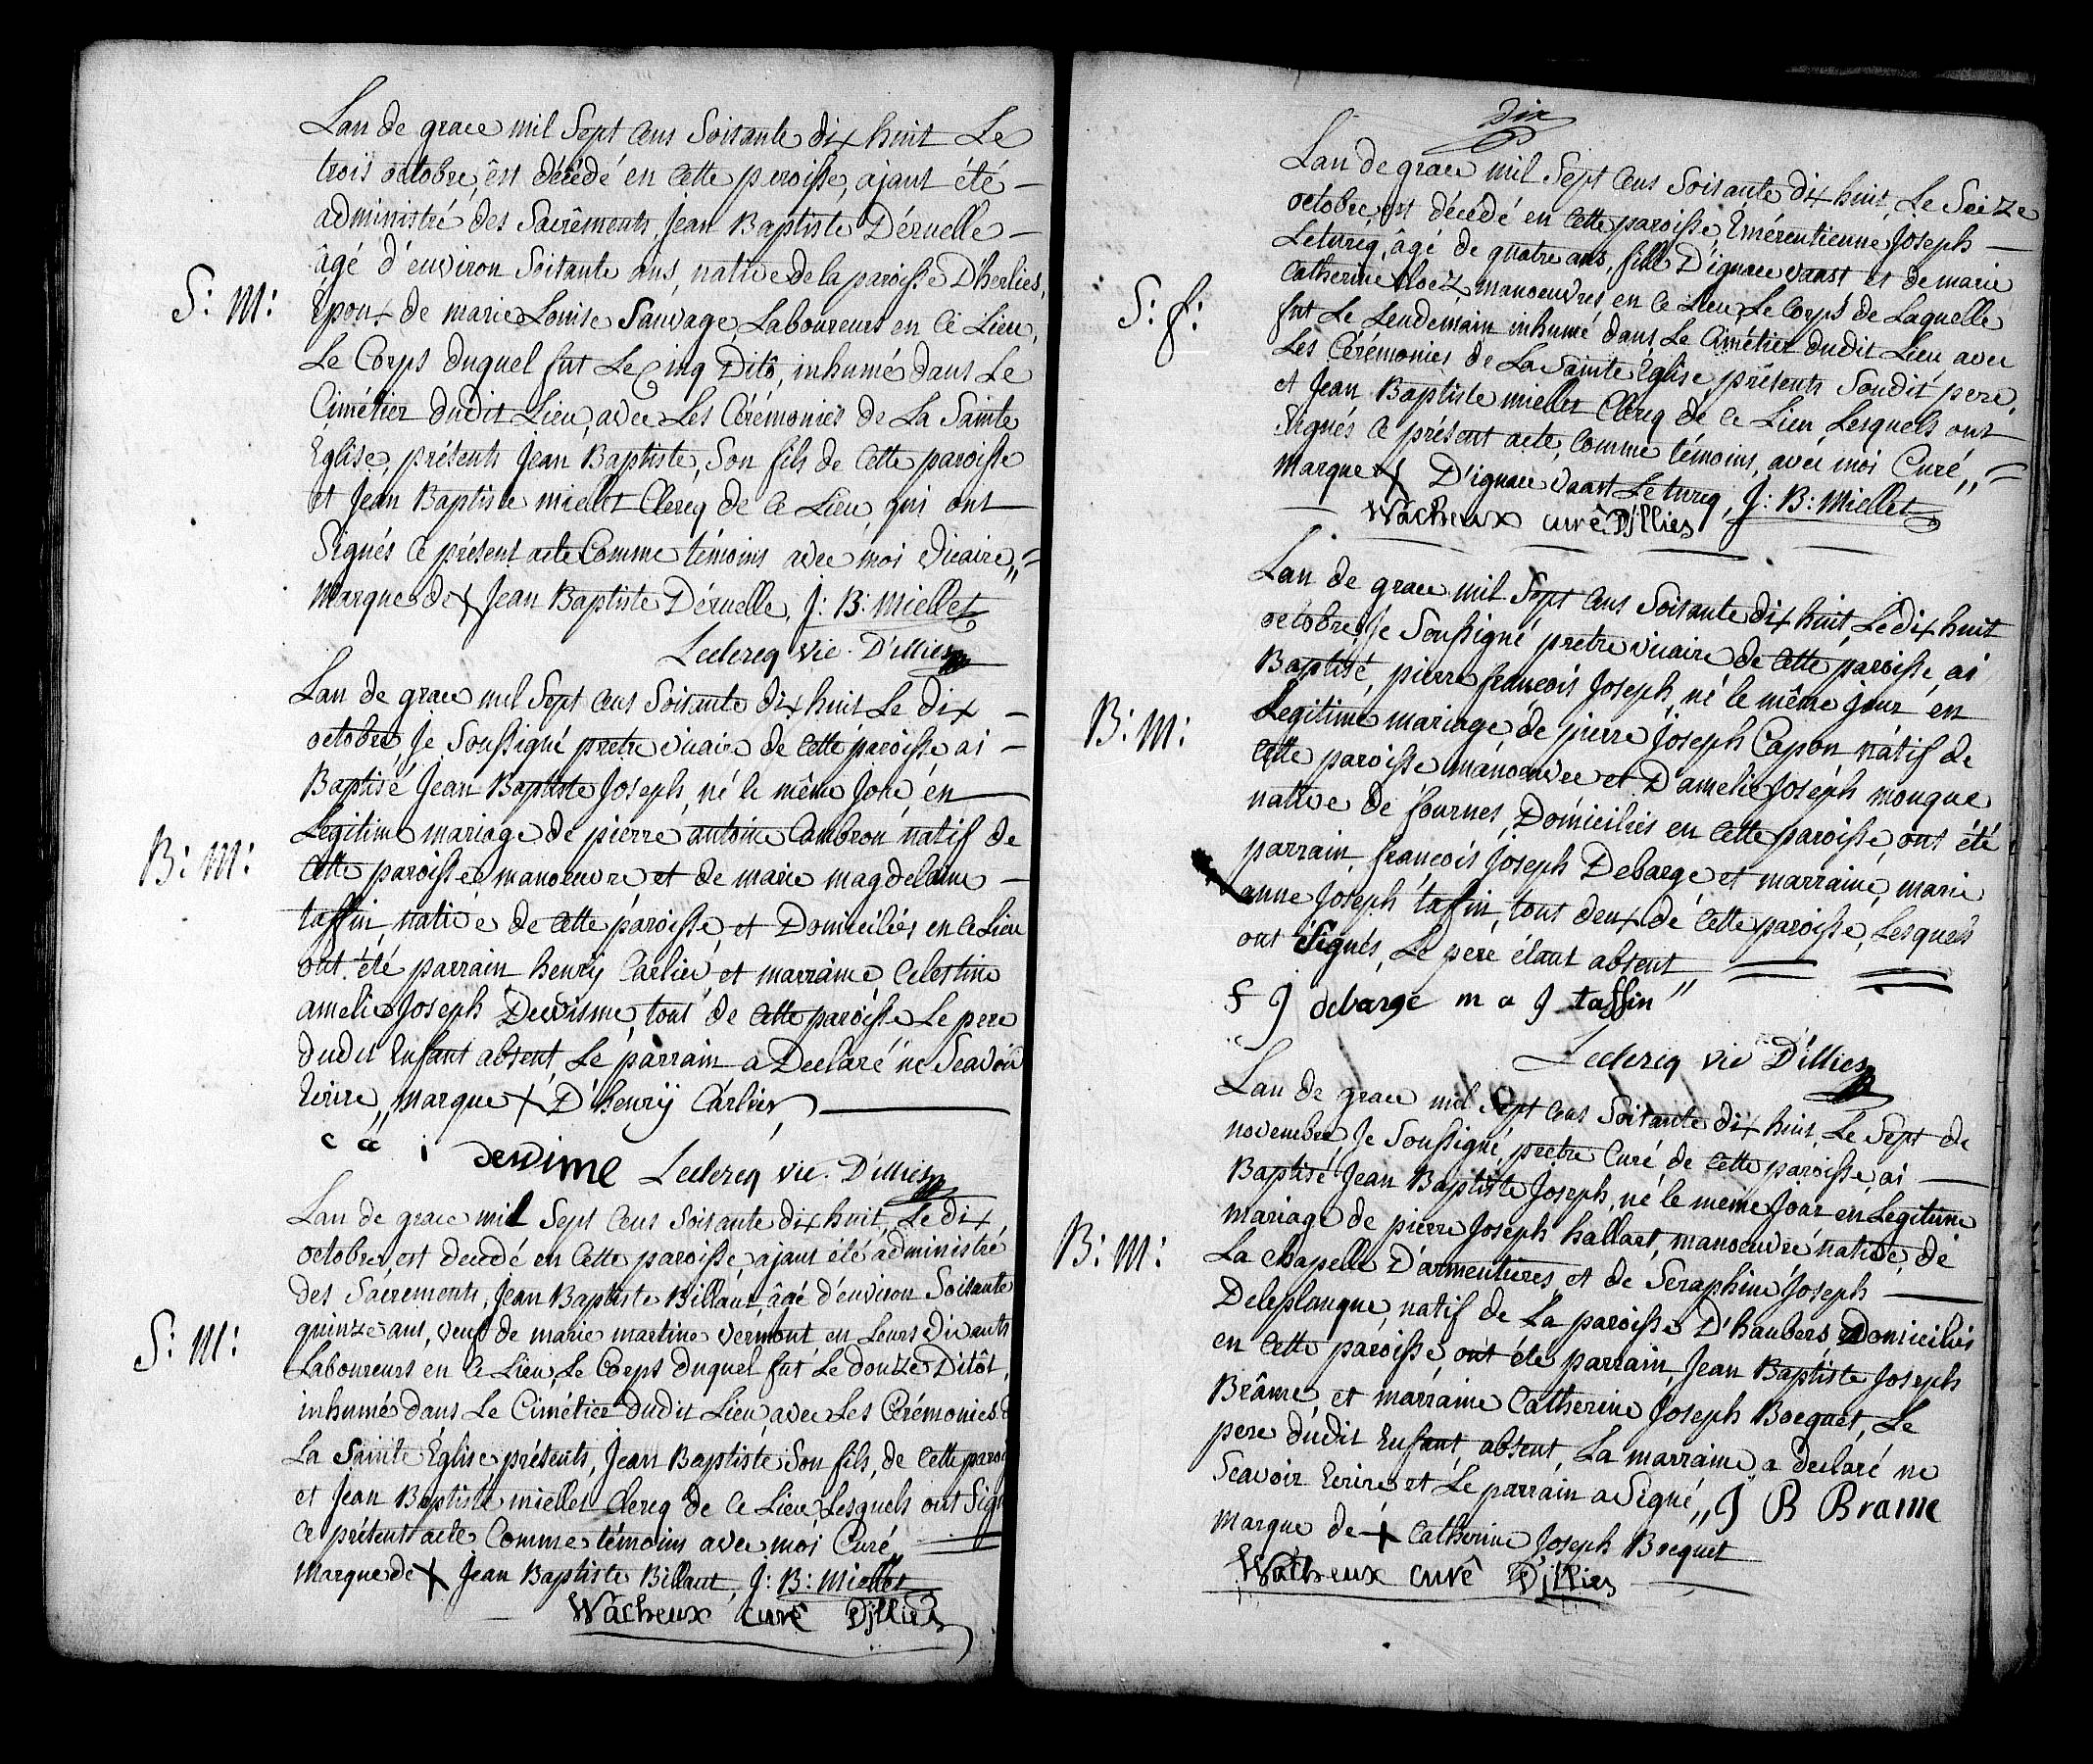 Lan de grace mil Sept Cens Soixante dix huit Le
trois octobre, est décédé en Cette paroisse, ajant été
administré des Sacrêments, Jean Baptiste Déruelle
âgé d'environ Soixante ans, native de la paroisse D'herlies,
S: M: Epoux de marie Louise Sauvage, Laboureurs en Ce Lieu,
Le Corps duquel fut Le Cinq Ditô, inhumé dans Le
Cimétier dudit Lieu, avec Les Cérémonies de La Sainte
Eglise, présents Jean Baptiste, Son fils de Cette paroisse
et Jean Baptiste miellet Clercq de Ce Lieu, qui ont
Signés Ce présent acte Comme témoins avec moi vicaire,,=
Marque de X Jean Baptiste Déruelle, J: B: Miellet
Leclercq vic. D'illies
Lan de grace mil Sept Cens Soixante dix huit Le dix
octobre, Je Soussigné pretre vicaire de Cette paroisse, ai
Baptisé Jean Baptiste Joseph, né le même Jour, én
B: M: Legitime mariage de pierre antoine Cambron natif de
Cette paroisse manoeuvre et de marie magdelaine
taffin, native de Cette paroisse, et Domiciliés en Ce Lieu
ont été parrain henrÿ Carlier, et marraine, Celestine
amelie Joseph Devisme, tout de Cette paroisse Le pere
dudit Enfant absent, Le parrain a Declaré ne Seavoir
Ecrire,, marque X D'henrÿ Carlier,
c a i devime Leclercq vic. D'illies
Lan de grace mil Sept Cens Soixante dix huit, Le dix
octobre, est decedé en Cette paroisse, ajant été administré
des Sacrements, Jean Baptiste Billaut, âgé d'environ Soixante
quinze ans, veuf de marie martine vermont en Leurs vivants
S: M: Laboureurs en Ce Lieu, Le Corps duquel fut Le douze Ditôt,
inhumé dans Le Cimétier dudit Lieu avec Les Cérémonies
La Sainte Eglise, présents, Jean Baptiste Son fils, de Cette paroi
et Jean Baptiste miellet Clercq de Ce Lieu, Lesquels ont Sign
Ce présent acte Comme témoins avec moi Curé
Marque de X Jean Baptiste Billaut, J: B: Miellet
Wacheux curé D'jllies
Dix
Lan de grace mil Sept Cens Soixante dix huit, Le Seize
octobre, est décédé en Cette paroisse Emérentienne Joseph
Leturcq, âgé de quatre ans, fille D'ignace vaast, et de marie
S: f: Catherine Cloez, manoeuvres, en Ce Lieu Le Corps de Laquelle
fut Le Lendemain inhumé dans Le Cimétier dudit Lieu, avec
Les Cérémonies de La Sainte Eglise, présents Soudit pere,
et Jean Baptiste miellet Clercq de Ce Lieu, Lesquels ont
Signés Ce présent acte, Comme témoins, avec moi Curé,,=
Marque X D'ignace vaast Leturcq, J: B: Miellet
Wacheux curé D'jllies
Lan de grace mil Sept Cens Soixante dix huit, Le dix huit
octobre, Je Soussigné pretre vicaire de Cette paroisse, ai
Baptisé, pierre françois Joseph, né le même jour én
B: M: Legitime mariage, de pierre Joseph Capon, nátif de
Cette paroisse, manoeuvre et D'amelie Joseph mouque
native de fournes, Domiciliés en Cette paroisse, ont été
parrain, françois Joseph Debarge et marraine, marie
anne Joseph taffin, tous deux de Cette paroisse, Lesquels
ont Signés, Le pere étant absent,,
f J debarge m a J taffin
Leclercq vic D'illies
Lan de grace mil Sept Cens Soixante dix huit, Le Sept de
novembre, Je Soussigné, pretre Curé de Cette paroisse, ai
Baptisé Jean Baptiste Joseph, né le même Jour en Legitime
mariage de pierre Joseph hallart, manoeuvre native, dé
B: M: La chapelle D'armentieres, et de Seraphine Joseph
Deleplanque, natif de La paroisse D'haubers, Domiciliés
en Cette paroisse, ont été parrain, Jean Baptiste Joseph
Brâme, et marraine Catherine Joseph Bocquet, Le
pere dudit Enfant, absent, La marraine a declaré ne
Scavoir Ecrire, et Le parrain a Signé,, J B Brame
marque de X Catherine Joseph Bocquet
Wacheux curé D'jllies